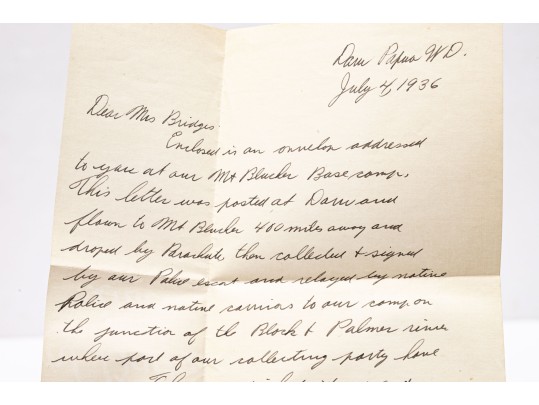 Daru Papua W.D.
July 4, 1936
Dear Mrs Bridges.
Enclosed is an onvelon addressed
to you at our Mt Blucher Base camp.
This letter was posted at Daru and
flown to Mt Blucher 400 miles away and
droped by Parachute then collected & signed
by our Police escort and relayed by native
Police and native carriers to our camp on
the junction of the Black & Palmer river
where part of our collecting party have